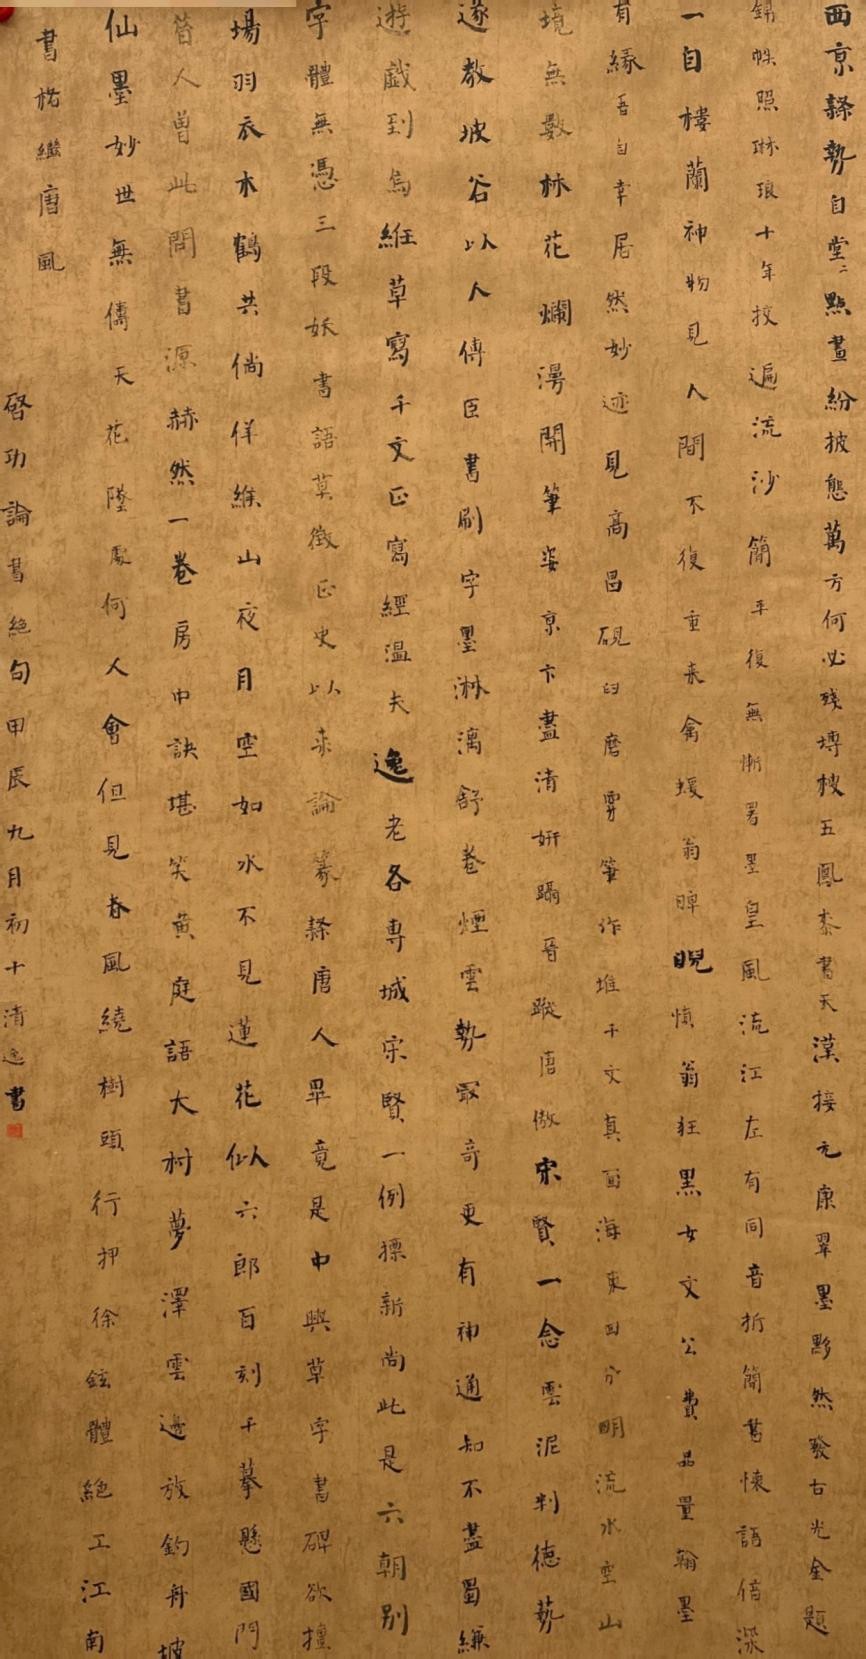 西京隸勢自堂二點畫紛披態萬方何必殘塼搜五鳳黍書天漢接元康翠墨黟然發古光金題
錦帙照琳瑯十年挍遍流沙簡平復無慚署墨皇風流江左有同音折簡書懷語倍深
一自樓蘭神物見人間不復重來禽蝯翁睥睨慎翁狂黑女文公費品量翰墨
有緣吾自幸居然妙迹見高昌硯臼磨穿筆作堆千文真面海東回分明流水空山
境無數林花爛漫開筆姿京卞盡清妍躡晉蹤唐傲宋賢一念雲泥判德藝
遂教坡谷以人傳臣書刷字墨淋漓舒卷煙雲勢最奇更有神通知不盡蜀縑
遊戲到烏絲草寫千文正寫經溫夫逸老各專城宋賢一例標新尚此是六朝別
字體無憑三段妖書語莫徵正史以來論篆隸唐人畢竟是中興草字書碑欲擅
場羽衣木鶴共徜徉緱山夜月空如水不見蓮花似六郎百刻千摹懸國門
昔人曾此問書源赫然一卷房中訣堪笑黄庭語大村夢澤雲邊放釣舟坡
仙墨妙世無儔天花墜處何人會但見春風繞樹頭行押徐鉉體絕工江南
書格繼唐風
啓功論書絕句甲辰九月初十清逸書